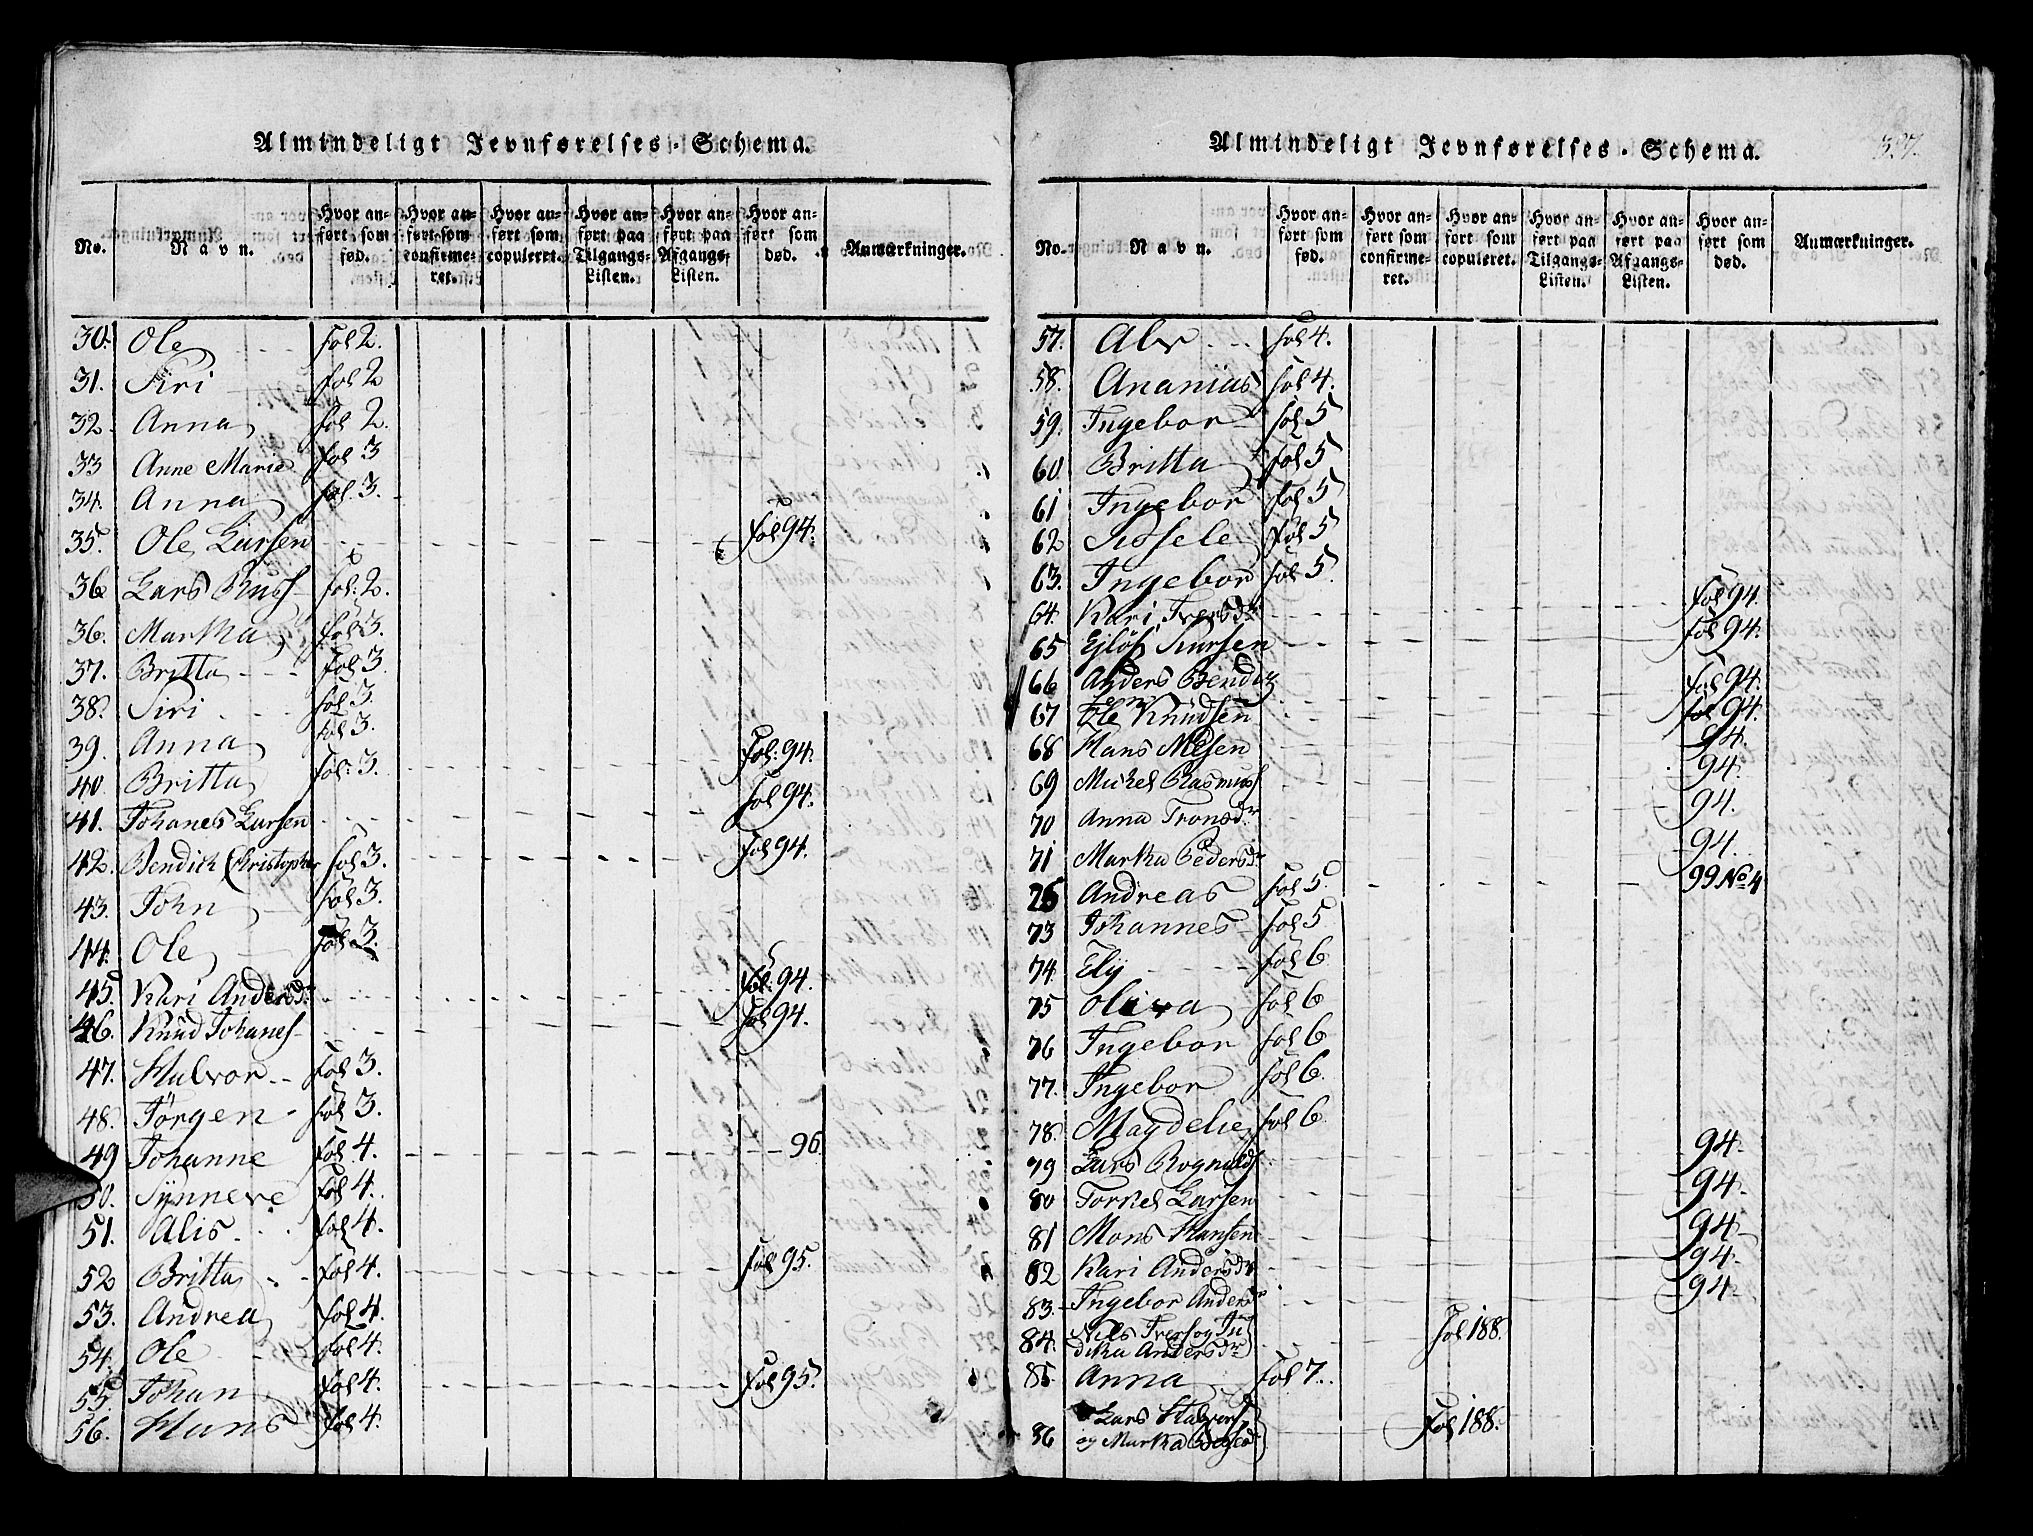 Almindeligt Jevnførelses-Schema.
No. Navn. Hvor anført som fød. Hvor anført som confirmeret. Hvor anført som copuleret. Hvor anført paa Tilgangs-Listen. Hvor anført paa Afgangs-Listen. Hvor anført som død. Anmærkninger.
30. Ole fol 2.
31. Siri fol 2
32. Anna fol 2.
33 Anne Marie fol 3
34. Anna fol. 3.
35. Ole Larsen fol 94.
36 Lars Russ fol: 2.
36. Martha fol 3.
37. Britta fol 3
38. Siri fol 3.
39. Anna fol 3.
40. Britta fol: 3. Fol: 94.
41. Johanes Larsen fol 94.
42. Bendich Christopher fol 3. fol 94.
43. John fol 3.
44. Ole fol 3.
45. Kari Andersdr fol: 94.
46. Knud Johanes fol 94.
47. Halvor fol 3.
48. Jörgen fol 3.
49 Johanne fol 4. 96
50. Synneve fol 4.
51. Alis. fol 4.
52 Britta fol 4. fol 95.
53. Andrea fol 4.
54. Ole fol 4.
55. Johan fol 4. fol 95.
56. Hans fol 4.
Almindeligt Jevnførelses-Schema. 327.
No. Navn. Hvor anført som fød. Hvor anført som confirmeret. Hvor anført som copuleret. Hvor anført paa Tilgangs-Listen. Hvor anført paa Afgangs-Listen. Hvor anført som død. Anmærkninger.
57. Alv fol 4.
58. Ananias fol 4.
59. Ingebor fol 5
60. Britta fol 5
61 Ingebor fol 5
62 Sissele fol 5
63. Ingebor fol 5.
64. Kari Iversdr fol 94.
65 Ejlöf Larsen fol 94.
66 Anders Bendix fol 94.
67 Ole Knudsen fol 94.
68 Hans Nilsen 94.
69 Michel Rasmuss 94.
70 Anna Tronsdr 94.
71 Martha Pedersdr 94.
Andreas fol 5. 99 No 4
73 Johannes fol 5
74. Ely fol 6
75 Oliva fol 6
76 Ingebor fol 6
77. Ingebor fol 6.
78. Magdelie fol 6
79 Lars Rognalds 94.
80 Torkel Larsen 94.
81 Mons Hansen 94.
82 Kari Andersdr 94.
83. Ingebor Andersdr 94.
84. Nils Ivers og In
dika Andersdr fol 188.
85. Anna fol 7.
86 Lars Halvors
og Martha fol 188.